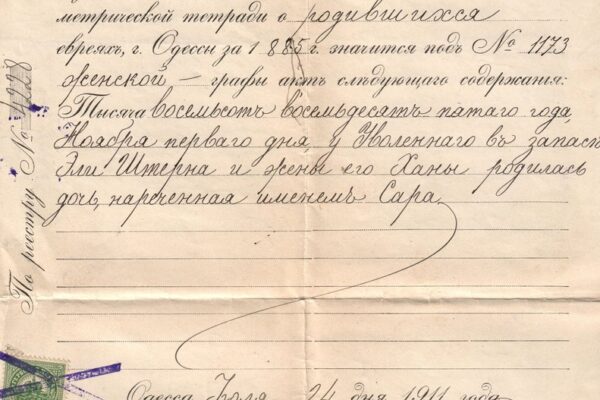 метрической тетради о родившихся
евреяхъ, г. Одессы за 1885 г. значится подъ № 1173
женской — графы актъ слѣдующаго содержанія:
Тысяча восемьсотъ восемьдесятъ пятаго года,
Ноября перваго дня, у Уволеннаго въ запасъ
Эли Штерна и жены его Ханы родилась
дочь, нареченная именемъ Сара.
По реестру №
Одесса, Іюля 24 дня 1911 года